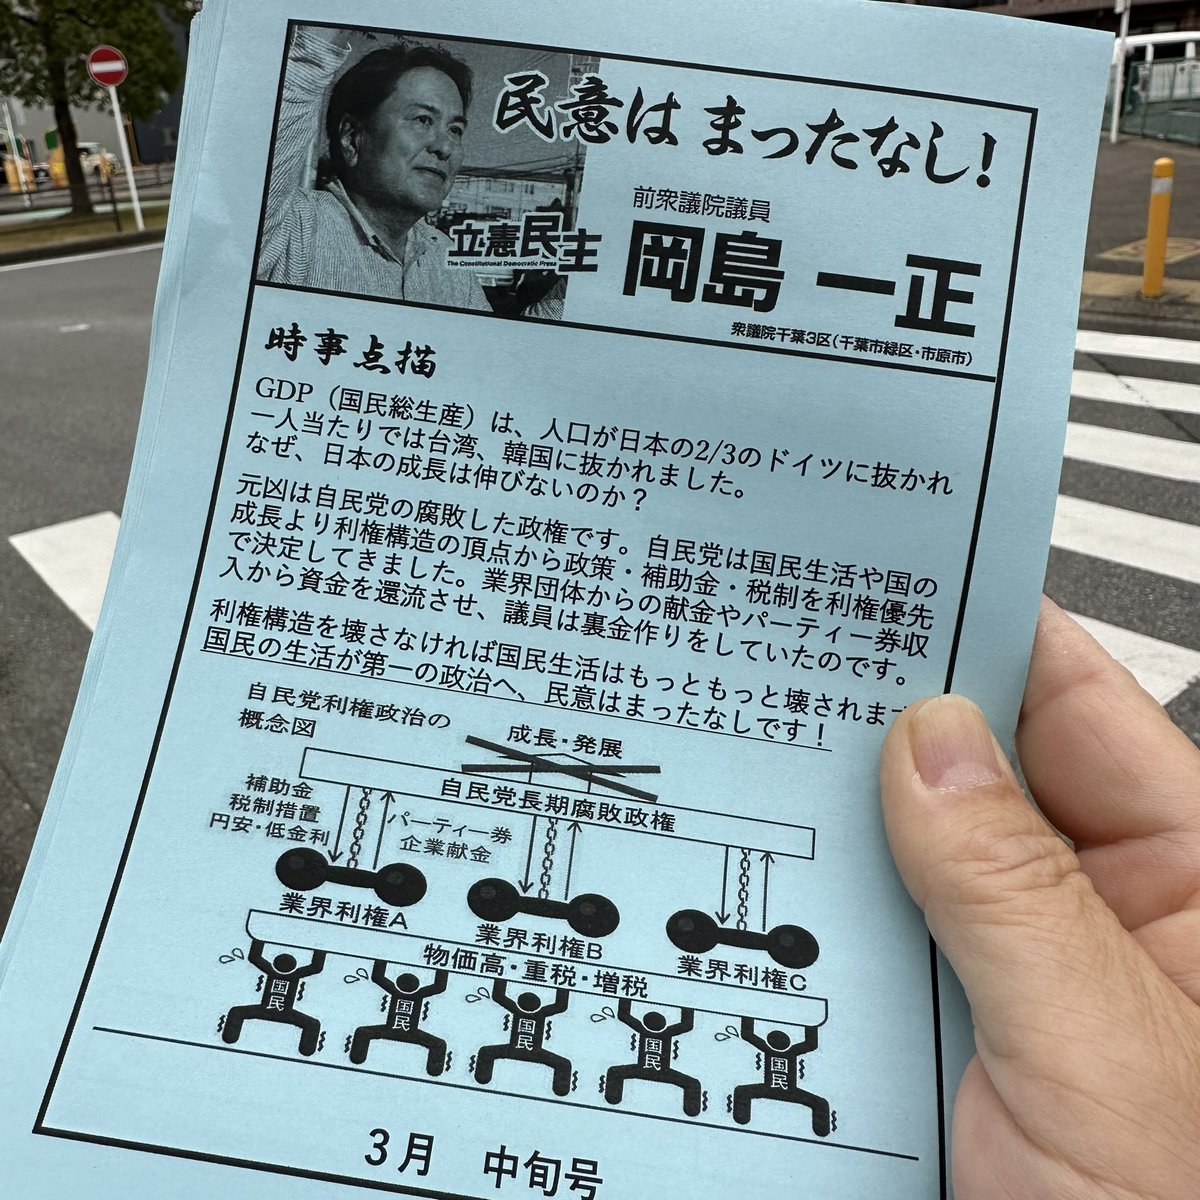 民意は まったなし!
前衆議院議員
立憲民主
The Constitutional Democratic Press
岡島 一正
衆議院千葉3区(千葉市緑区・市原市)
時事点描
GDP(国民総生産)は、人口が日本の2/3のドイツに抜かれ
一人当たりでは台湾、韓国に抜かれました。
なぜ、日本の成長は伸びないのか?
元凶は自民党の腐敗した政権です。自民党は国民生活や国の
成長より利権構造の頂点から政策・補助金・税制を利権優先
で決定してきました。業界団体からの献金やパーティー券収
入から資金を還流させ、議員は裏金作りをしていたのです。
利権構造を壊さなければ国民生活はもっともっと壊されます
国民の生活が第一の政治へ、民意はまったなしです!
自民党利権政治の
概念図
成長・発展
自民党長期腐敗政権
補助金
税制措置
円安・低金利
パーティー券
企業献金
業界利権A
業界利権B
業界利権C
物価高・重税・増税
国民
国民
国民
国民
国民
3月 中旬号